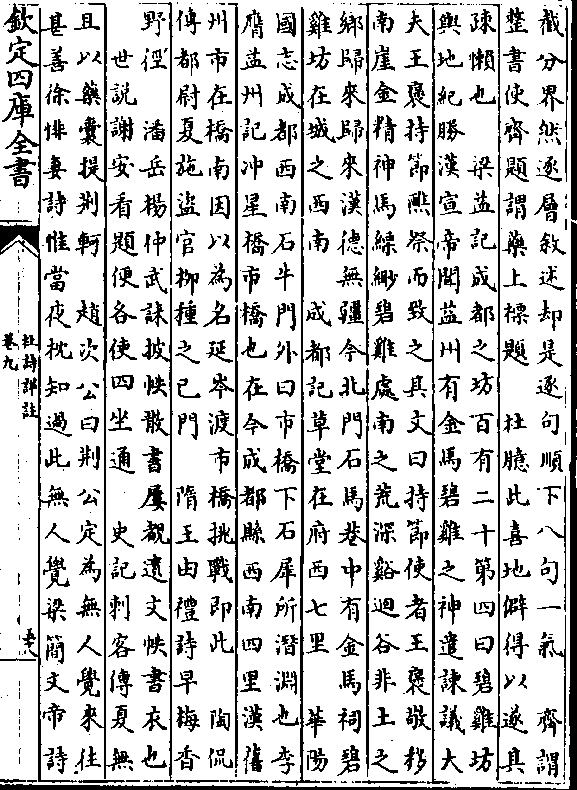 截分界然逐層敘述却是逐句順下八句一氣　齊謂
整書使齊題謂藥上標題　杜臆此喜地僻得以遂其
疎懶也　梁益記成都之坊百有二十第四曰碧雞坊
輿地紀勝漢宣帝聞益州有金馬碧雞之神遣諫議大
夫王褒持節醮祭而致之其文曰持節使者王褒敬移
南崖金精神馬縹緲碧雞處南之荒深谿迴谷非土之
鄉歸來歸來漢德無疆今北門石馬巷中有金馬祠碧
雞坊在城之西南　成都記草堂在府西七里　華陽
國志成都西南石牛門外曰市橋下石犀所潛淵也李
膺益州記冲星橋市橋也在今成都縣西南四里漢舊
州市在橋南因以為名延岑渡市橋挑戰即此　陶侃
傳都尉夏施盜官柳種之已門　隋王由禮詩早梅香
野徑　潘岳楊仲武誄披帙散書屢覩遺文帙書衣也
世說謝安看題便各使四坐通　史記刺客傳夏無
且以藥囊提荆軻　趙次公曰荆公定為無人覺來往
甚善徐悱妻詩惟當夜枕知過此無人覺梁簡文帝詩
欽定四庫全書
杜詩詳註
卷九